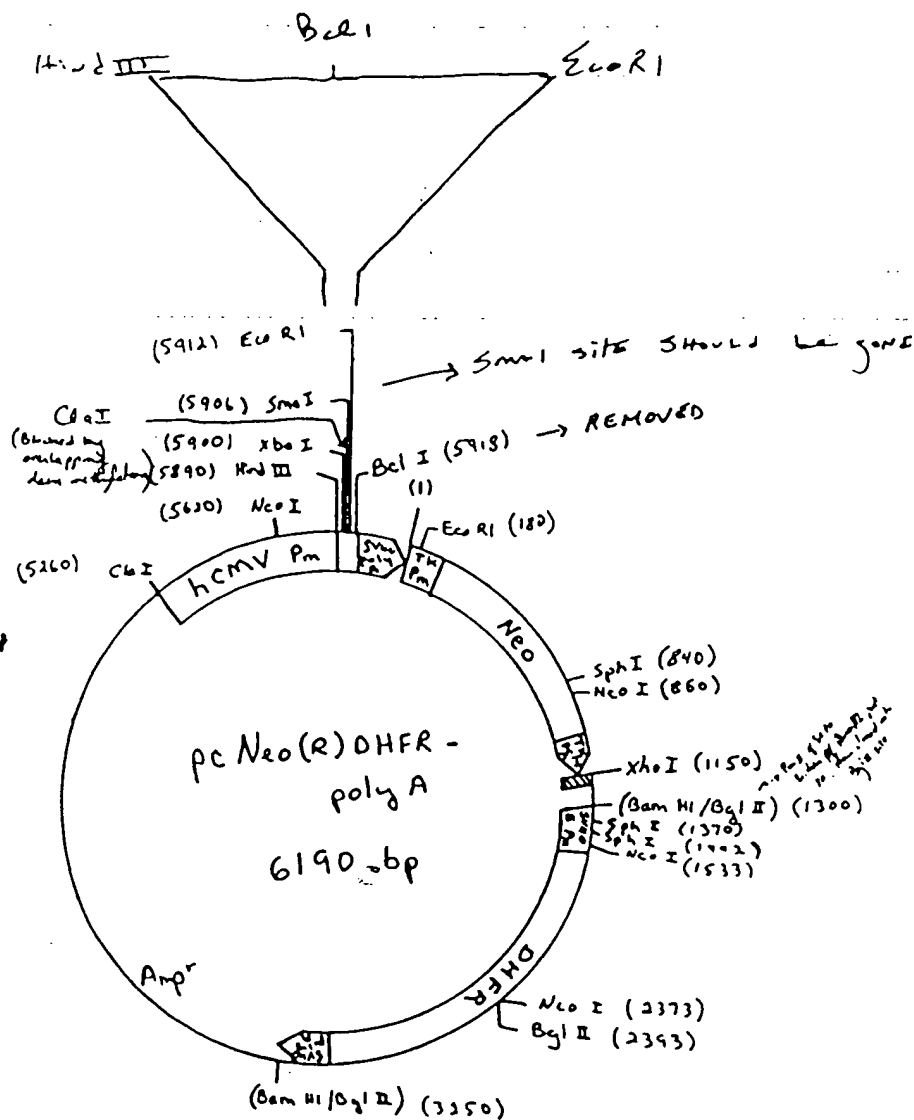 Bcl 1
Hind III
EcoR1
(5912) EcoR1
Sma1 site SHOULD be gone
(5906) SmaI
ClaI
(Blocked by
overlapping
(5900) XbaI
(5890) Hind III
Bcl I (5918) → REMOVED
(1)
(5620) NcoI
EcoR1 (180)
(5260) ClaI
hCMV Pm
TK
Pm
Neo
SphI (840)
NcoI (860)
XhoI (1150)
(Bam H1/Bgl II) (1300)
SphI (1370)
SphI
NcoI
(1533)
pc Neo(R)DHFR-
poly A
6190 bp
DHFR
Ampr
NcoI (2373)
Bgl II (2393)
(Bam H1/Bgl II) (3250)